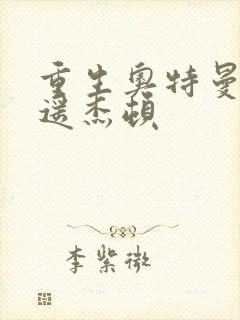 重生奥特曼
遥杰顿
李紫微